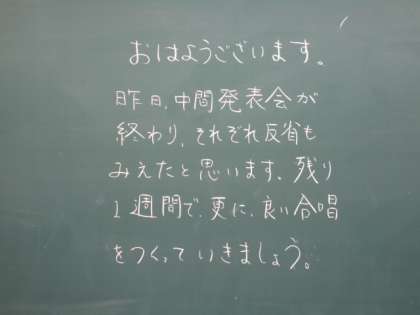 おはようございます。
昨日、中間発表会が
終わり、それぞれ反省も
みえたと思います。残り
1週間で、更に、良い合唱
をつくっていきましょう。